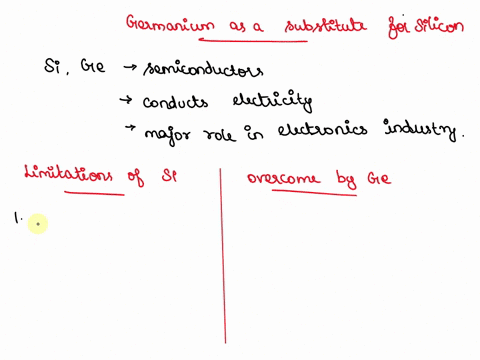 Germanium as a substitute for Silicon
Si, Ge → semiconductors
→ conducts electricity
→ major role in electronics industry.
Limitations of Si
overcome by Ge
1.